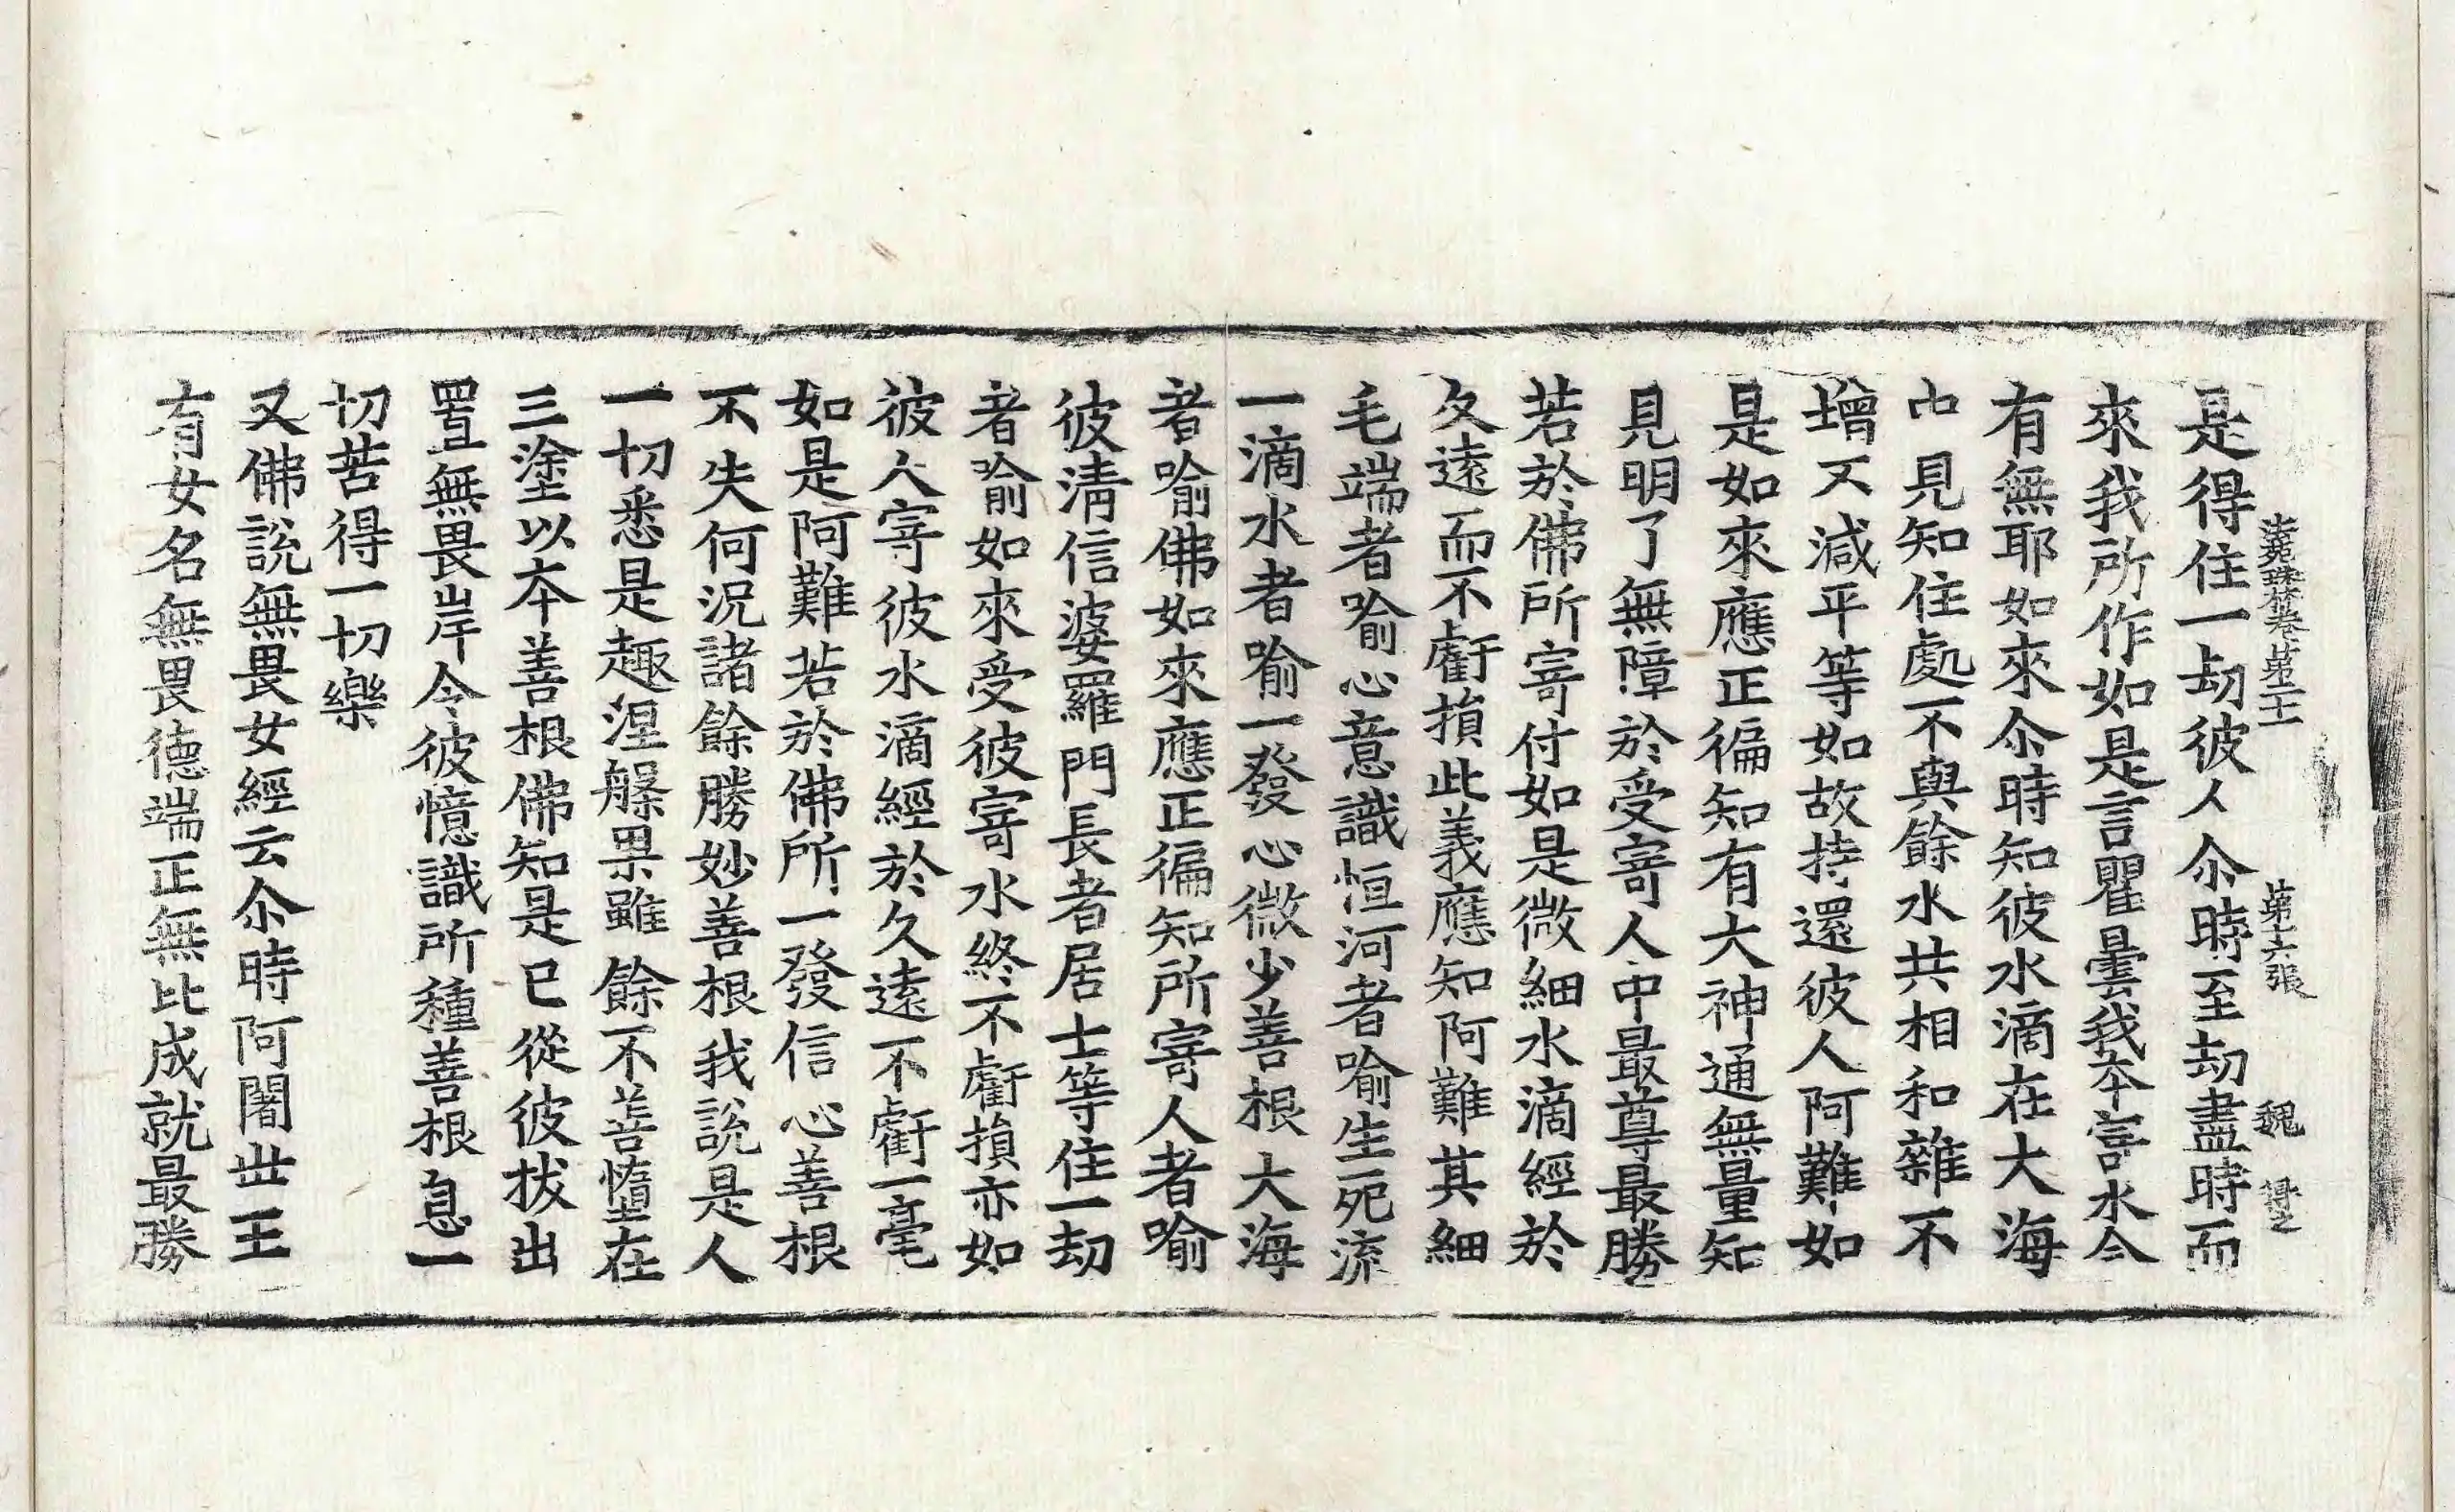 法苑珠林卷第二十 第十六張 魏
是得住一劫彼人尒時至劫盡時而
來我所作如是言瞿曇我本寄水今
有無耶如來尒時知彼水滴在大海
中見知住處不與餘水共相和雜不
增又減平等如故持還彼人阿難如
是如來應正徧知有大神通無量知
見明了無障於受寄人中最尊最勝
若於佛所寄付如是微細水滴經於
久遠而不虧損此義應知阿難其細
毛端者喻心意識恒河者喻生死流
一滴水者喻一發心微少善根大海
者喻佛如來應正徧知所寄人者喻
彼清信婆羅門長者居士等住一劫
者喻如來受彼寄水終不虧損亦如
彼人寄彼水滴經於久遠不虧一毫
如是阿難若於佛所一發信心善根
不失何況諸餘勝妙善根我說是人
一切悉是趣涅槃果雖餘不善墮在
三塗以本善根佛知是已從彼拔出
置無畏岸令彼憶識所種善根息一
切苦得一切樂
又佛說無畏女經云尒時阿闍世王
有女名無畏德端正無比成就最勝